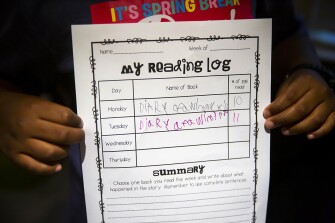 IT'S SPRING BREAK
Name: Week of
My Reading Log
Day Name of Book # of pgs read
Monday DIARY OF a Wimpy 10
Tuesday DIARY OF a Wimpy 11
Wednesday
Thursday
Summary
Choose one book you read this week and write about what
happened in the story. Remember to use complete sentences.